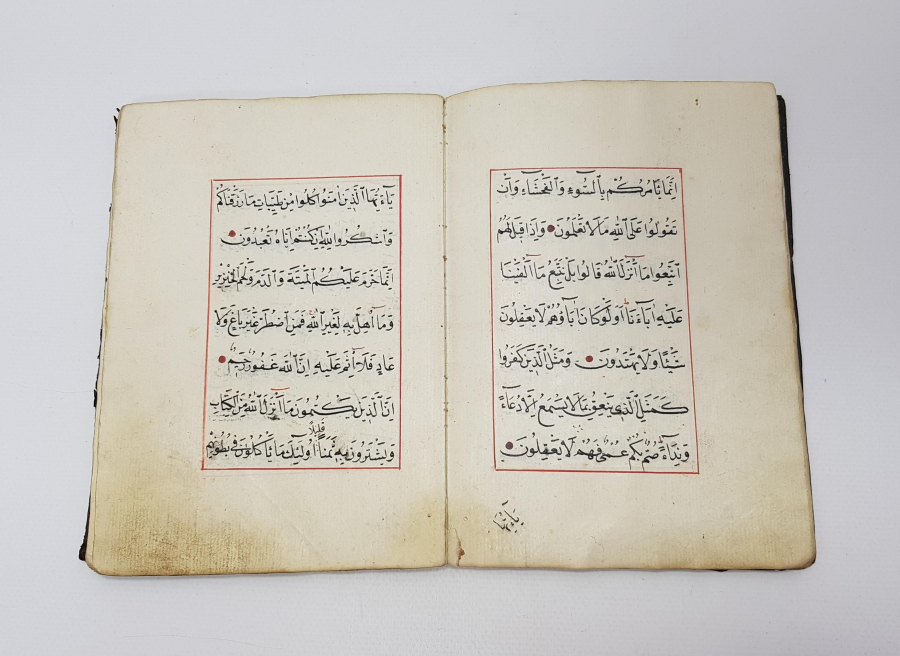 اِنَّمَا يَاْمُرُكُمْ بِالسُّوءِ وَالْفَحْشَاءِ وَاَنْ
تَقُولُوا عَلَى اللّٰهِ مَا لَا تَعْلَمُونَ وَاِذَا قِيلَ لَهُمُ
اتَّبِعُوا مَا اَنْزَلَ اللّٰهُ قَالُوا بَلْ نَتَّبِعُ مَا اَلْفَيْنَا
عَلَيْهِ اٰبَاءَنَا اَوَلَوْ كَانَ اٰبَاؤُهُمْ لَا يَعْقِلُونَ
شَيْئًا وَلَا يَهْتَدُونَ وَمَثَلُ الَّذِينَ كَفَرُوا
كَمَثَلِ الَّذِي يَنْعِقُ بِمَا لَا يَسْمَعُ اِلَّا دُعَاءً
وَنِدَاءً صُمٌّ بُكْمٌ عُمْيٌ فَهُمْ لَا يَعْقِلُونَ
يَاءَيُّهَا
يَاءَيُّهَا الَّذِينَ اٰمَنُوا كُلُوا مِنْ طَيِّبَاتِ مَا رَزَقْنَاكُمْ
وَاشْكُرُوا لِلّٰهِ اِنْ كُنْتُمْ اِيَّاهُ تَعْبُدُونَ
اِنَّمَا حَرَّمَ عَلَيْكُمُ الْمَيْتَةَ وَالدَّمَ وَلَحْمَ الْخِنْزِيرِ
وَمَا اُهِلَّ بِهِ لِغَيْرِ اللّٰهِ فَمَنِ اضْطُرَّ غَيْرَ بَاغٍ وَلَا
عَادٍ فَلَا اِثْمَ عَلَيْهِ اِنَّ اللّٰهَ غَفُورٌ رَحِيمٌ
اِنَّ الَّذِينَ يَكْتُمُونَ مَا اَنْزَلَ اللّٰهُ مِنَ الْكِتَابِ
وَيَشْتَرُونَ بِهِ ثَمَنًا قَلِيلًا اُولٰئِكَ مَا يَاْكُلُونَ فِي بُطُونِهِمْ